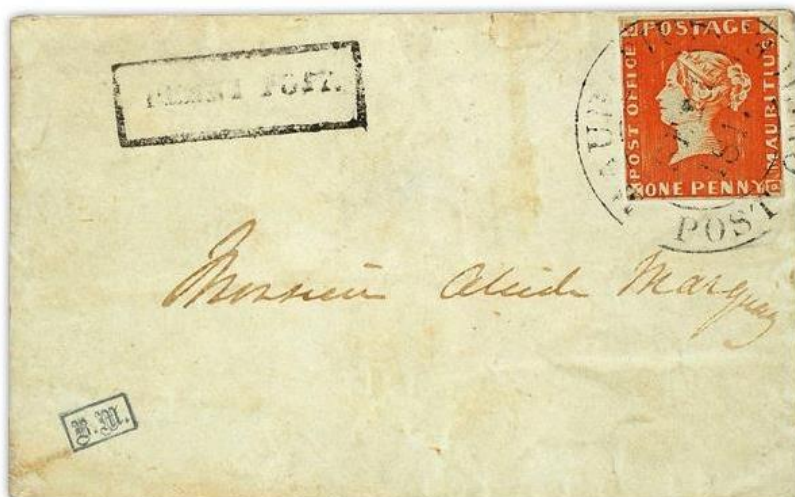 PENNY POST.
POSTAGE
POST OFFICE
MAURITIUS
ONE PENNY
MAURITIUS
POST
Monsieur Alcide Marquay